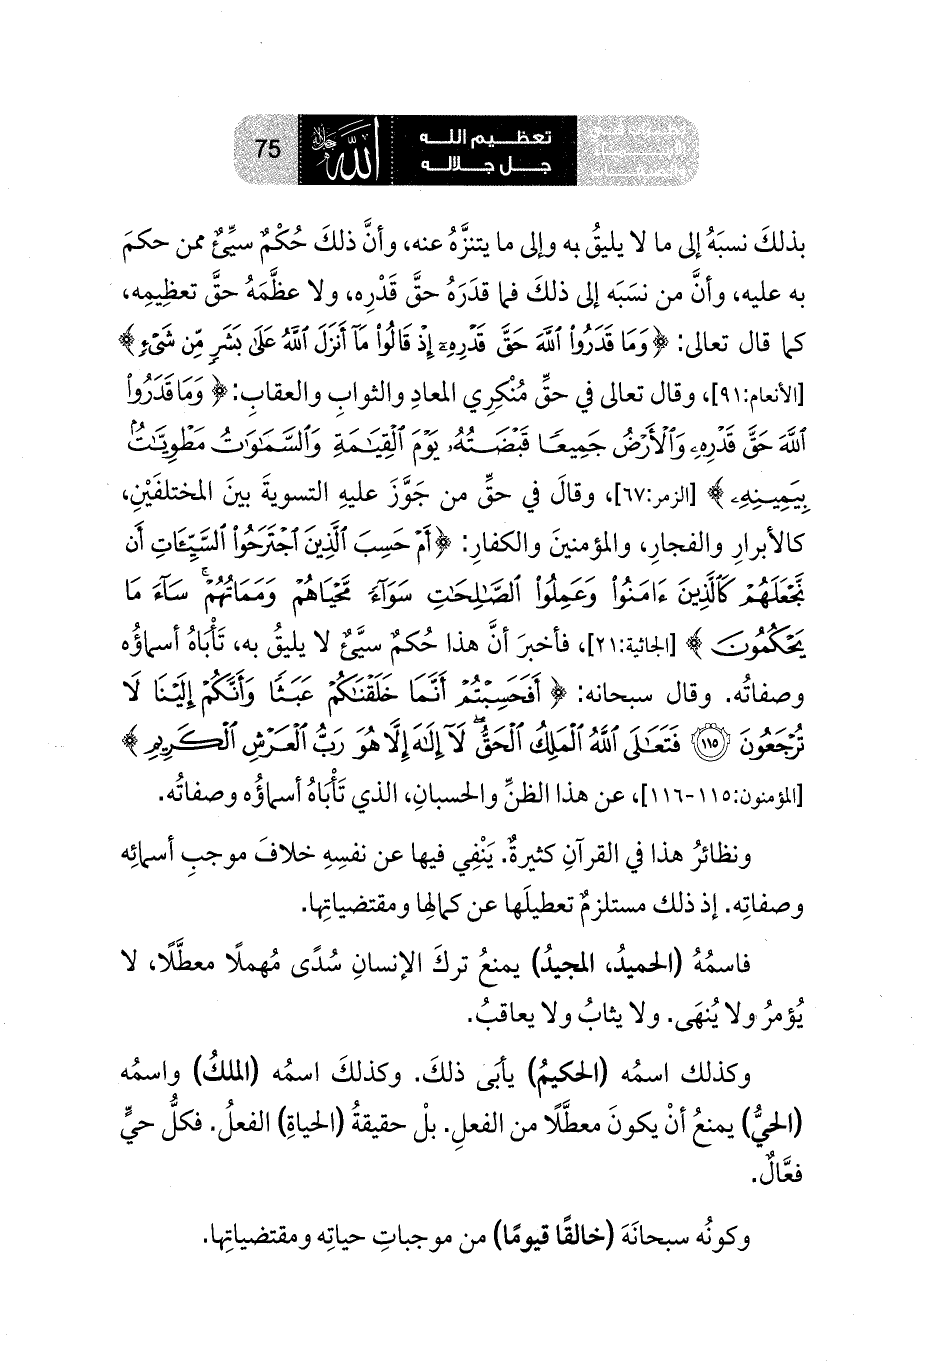 75
الله جل جلاله
تعظيم الله
جل جلاله
بذلكَ نسبَهُ إلى ما لا يليقُ به وإلى ما يتنزَّهُ عنه، وأنَّ ذلكَ حُكْمٌ سيِّئٌ ممن حكمَ
به عليه، وأنَّ من نسَبَه إلى ذلكَ فما قدَرَهُ حقَّ قَدْرِه، ولا عظَّمَهُ حقَّ تعظِيمِه،
كما قال تعالى: ﴿وَمَا قَدَرُوا۟ ٱللَّهَ حَقَّ قَدْرِهِۦٓ إِذْ قَالُوا۟ مَآ أَنزَلَ ٱللَّهُ عَلَىٰ بَشَرٍ مِّن شَىْءٍ﴾
[الأنعام:٩١]، وقال تعالى في حقِّ مُنْكِرِي المعادِ والثوابِ والعقابِ: ﴿وَمَا قَدَرُوا۟
ٱللَّهَ حَقَّ قَدْرِهِۦ وَٱلْأَرْضُ جَمِيعًا قَبْضَتُهُۥ يَوْمَ ٱلْقِيَٰمَةِ وَٱلسَّمَٰوَٰتُ مَطْوِيَّٰتٌۢ
بِيَمِينِهِۦ﴾ [الزمر:٦٧]، وقالَ في حقِّ من جَوَّزَ عليهِ التسويةَ بينَ المختلفَيْنِ،
كالأبرارِ والفجارِ، والمؤمنينَ والكفارِ: ﴿أَمْ حَسِبَ ٱلَّذِينَ ٱجْتَرَحُوا۟ ٱلسَّيِّـَٔاتِ أَن
نَّجْعَلَهُمْ كَٱلَّذِينَ ءَامَنُوا۟ وَعَمِلُوا۟ ٱلصَّٰلِحَٰتِ سَوَآءً مَّحْيَاهُمْ وَمَمَاتُهُمْ ۚ سَآءَ مَا
يَحْكُمُونَ﴾ [الجاثية:٢١]، فأخبرَ أنَّ هذا حُكمٌ سيِّئٌ لا يليقُ به، تَأْبَاهُ أسماؤُه
وصفاتُه. وقال سبحانه: ﴿أَفَحَسِبْتُمْ أَنَّمَا خَلَقْنَٰكُمْ عَبَثًا وَأَنَّكُمْ إِلَيْنَا لَا
تُرْجَعُونَ ۝١١٥ فَتَعَٰلَى ٱللَّهُ ٱلْمَلِكُ ٱلْحَقُّ ۖ لَآ إِلَٰهَ إِلَّا هُوَ رَبُّ ٱلْعَرْشِ ٱلْكَرِيمِ﴾
[المؤمنون:١١٥-١١٦]، عن هذا الظنِّ والحسبانِ، الذي تَأْبَاهُ أسماؤُه وصفاتُه.
ونظائرُ هذا في القرآنِ كثيرةٌ. يَنْفِي فيها عن نفسِهِ خلافَ موجبِ أسمائِه
وصفاتِه. إذ ذلك مستلزمٌ تعطيلَها عن كمالِها ومقتضياتِها.
فاسمُهُ (الحميدُ، المجيدُ) يمنعُ تركَ الإنسانِ سُدًى مُهملًا معطَّلًا، لا
يُؤمرُ ولا يُنهَى. ولا يثابُ ولا يعاقبُ.
وكذلك اسمُه (الحكيمُ) يأبَى ذلكَ. وكذلكَ اسمُه (الملكُ) واسمُه
(الحيُّ) يمنعُ أنْ يكونَ معطَّلًا من الفعلِ. بلْ حقيقةُ (الحياةِ) الفعلُ. فكلُّ حيٍّ
فعَّالٌ.
وكونُه سبحانَهَ (خالقًا قيومًا) من موجباتِ حياتِه ومقتضياتِها.